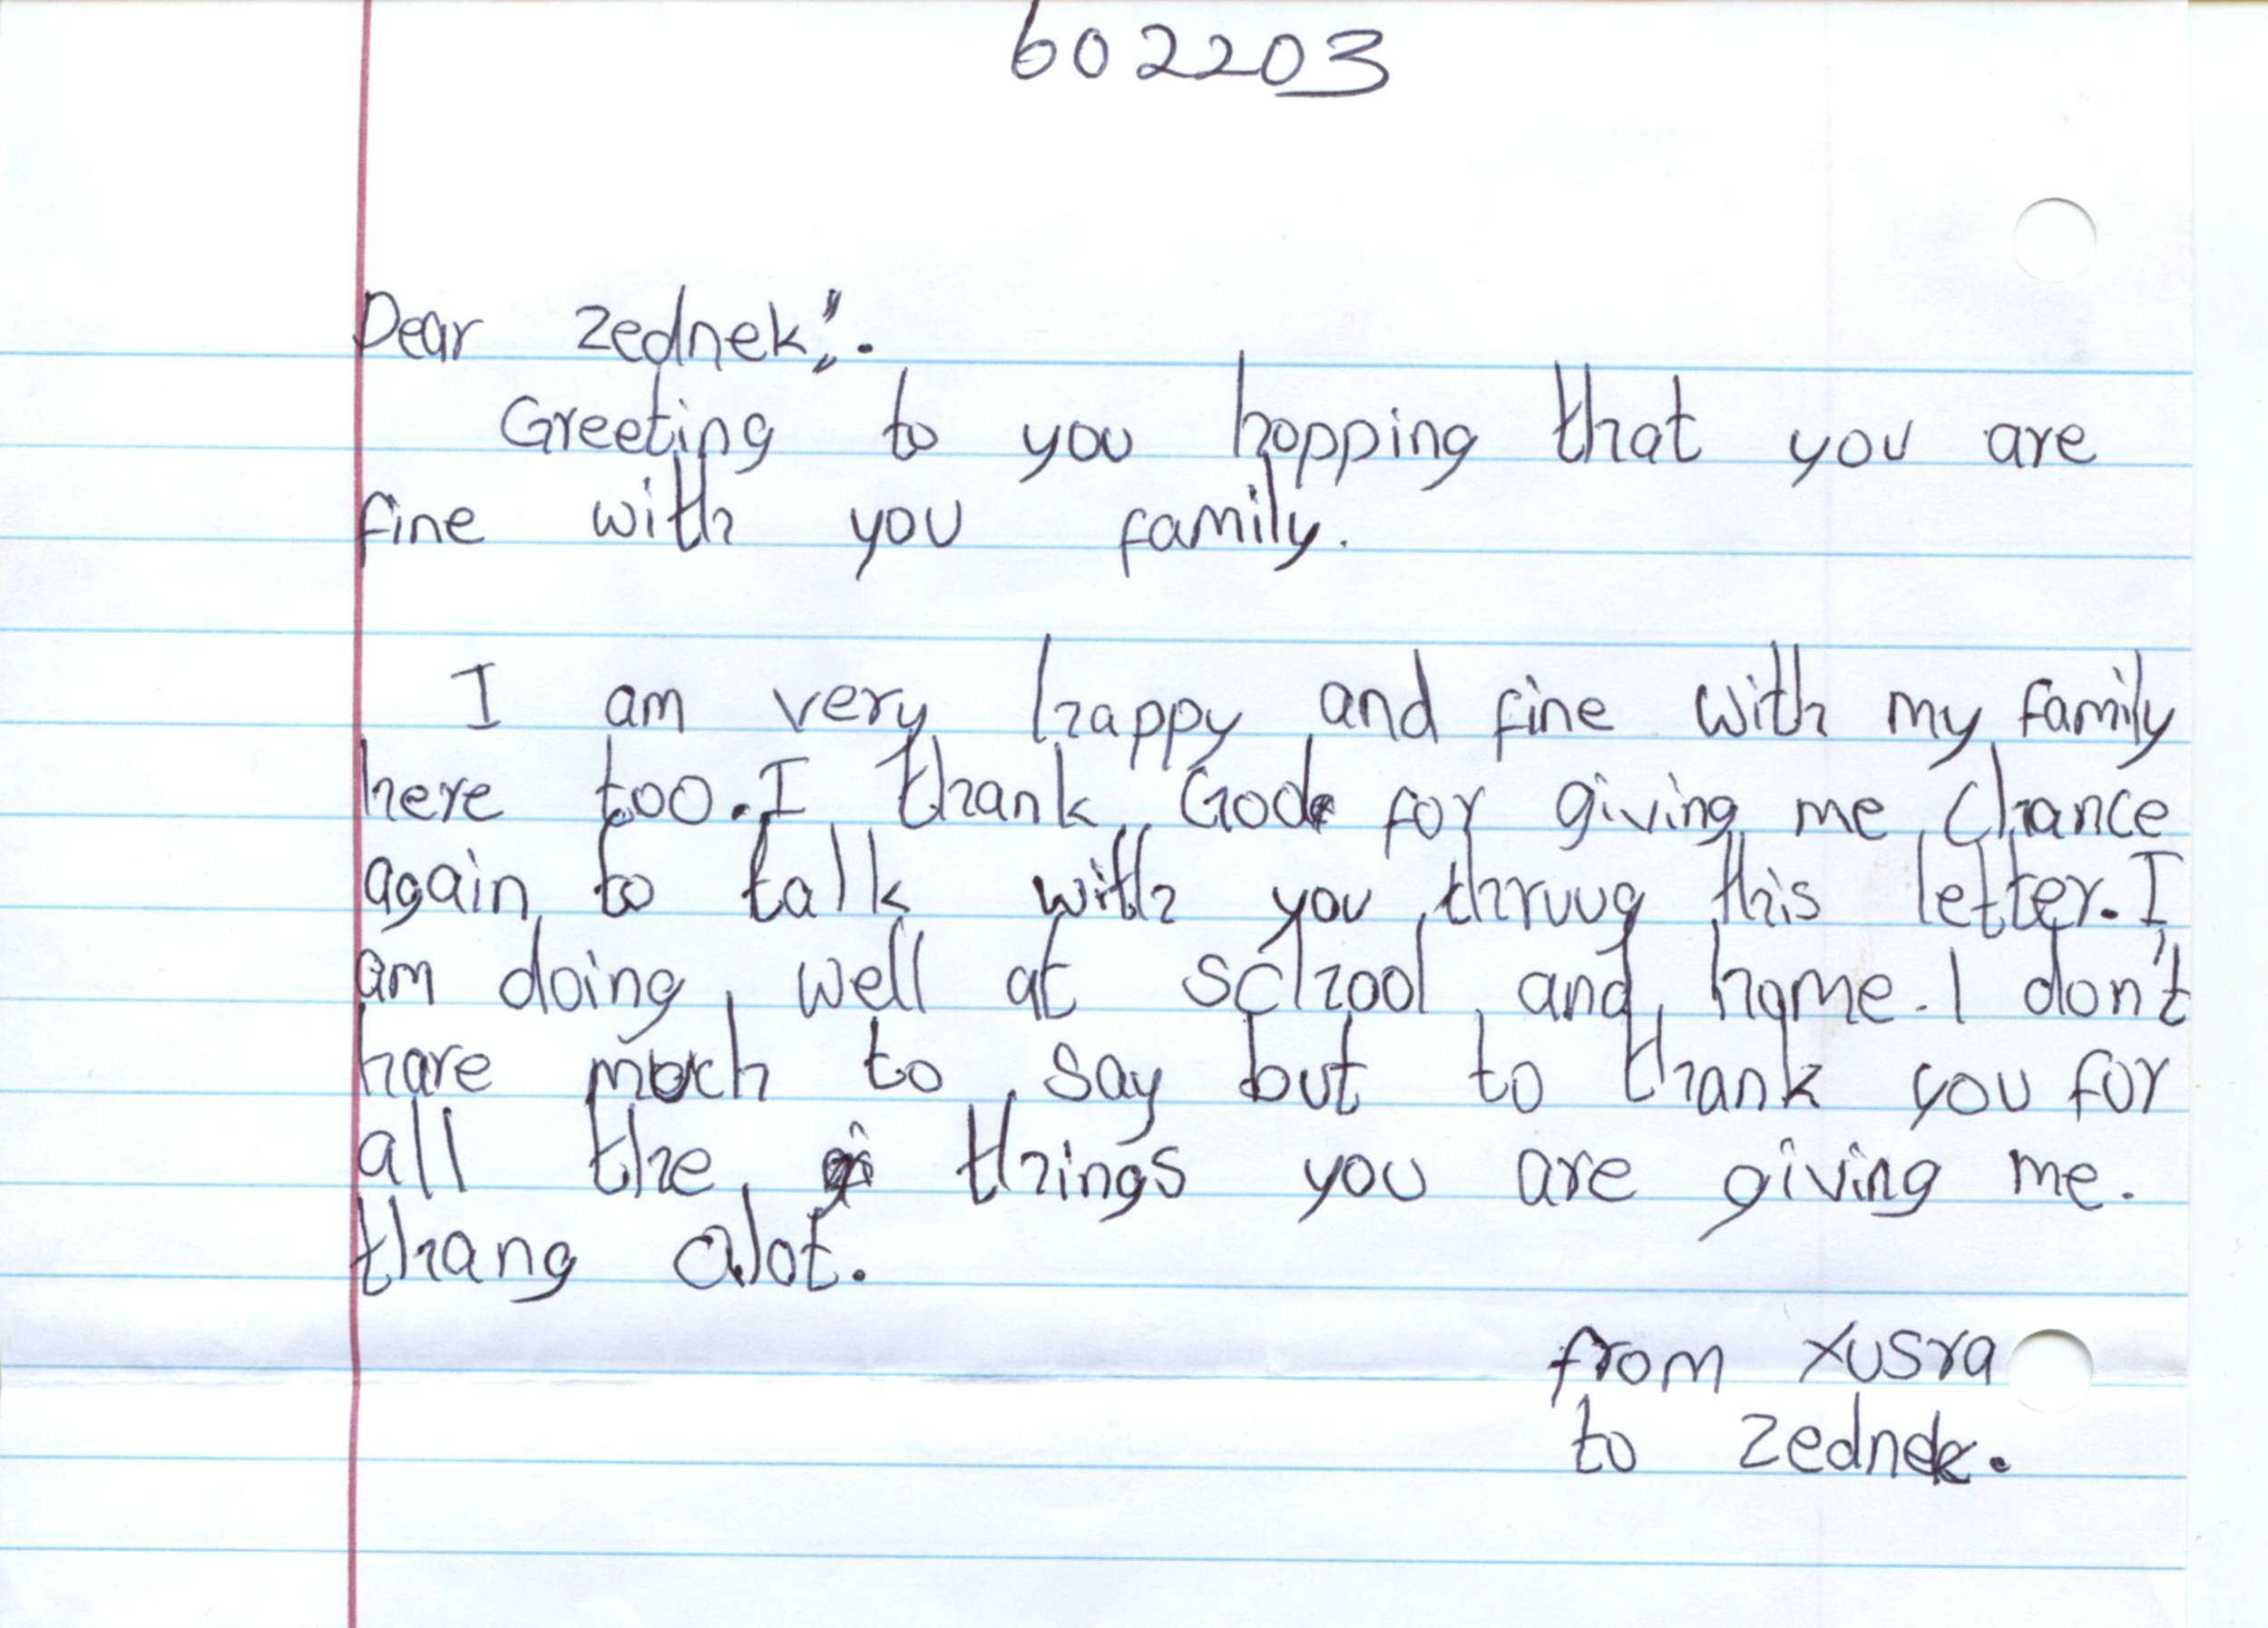 602203
Dear zednek;".
Greeting to you hopping that you are
fine with you family.
I am very happy and fine with my family
here too. I thank God for giving me chance
again to talk with you thruug this letter. I
am doing well at school and home. I don't
have much to say but to thank you for
all the things you are giving me.
thang alot.
from Yusra
to zednek.